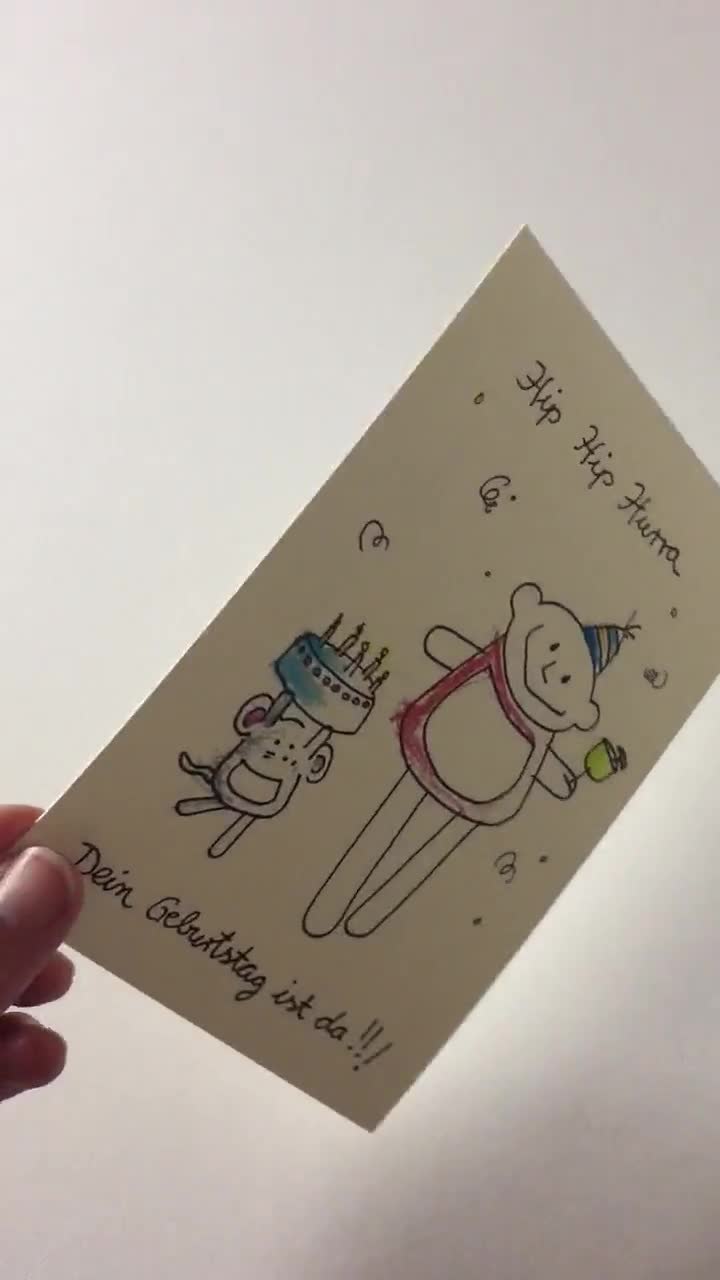 Hip Hip Hurra
Dein Geburtstag ist da!!!